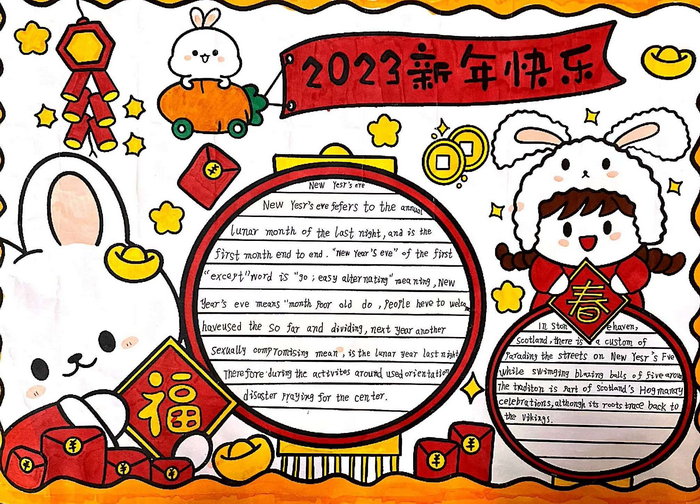 2023新年快乐
New Yesr's eve
New Yesr's eve fefers to the annual
lunar month of the last night, and is the
first month end to end. "New Year's eve" of the first
"except" word is "go; easy alternating" meaning, New
Year's eve means "month poor old do, people have to welcome
haveused the so far and dividing, next year another
sexually compromising mean", is the lunar year last night
Therefore during the activites around used orientation
disaster praying for the center.
福
春
In Ston ehaven,
Scotland, there is a custom of
Parading the streets on New Yesr's Eve
while swinging blazing balls of five around
The traditon is part of Scotland's Hogmanay
celebrations, although its roots trace back to
the Vikings.